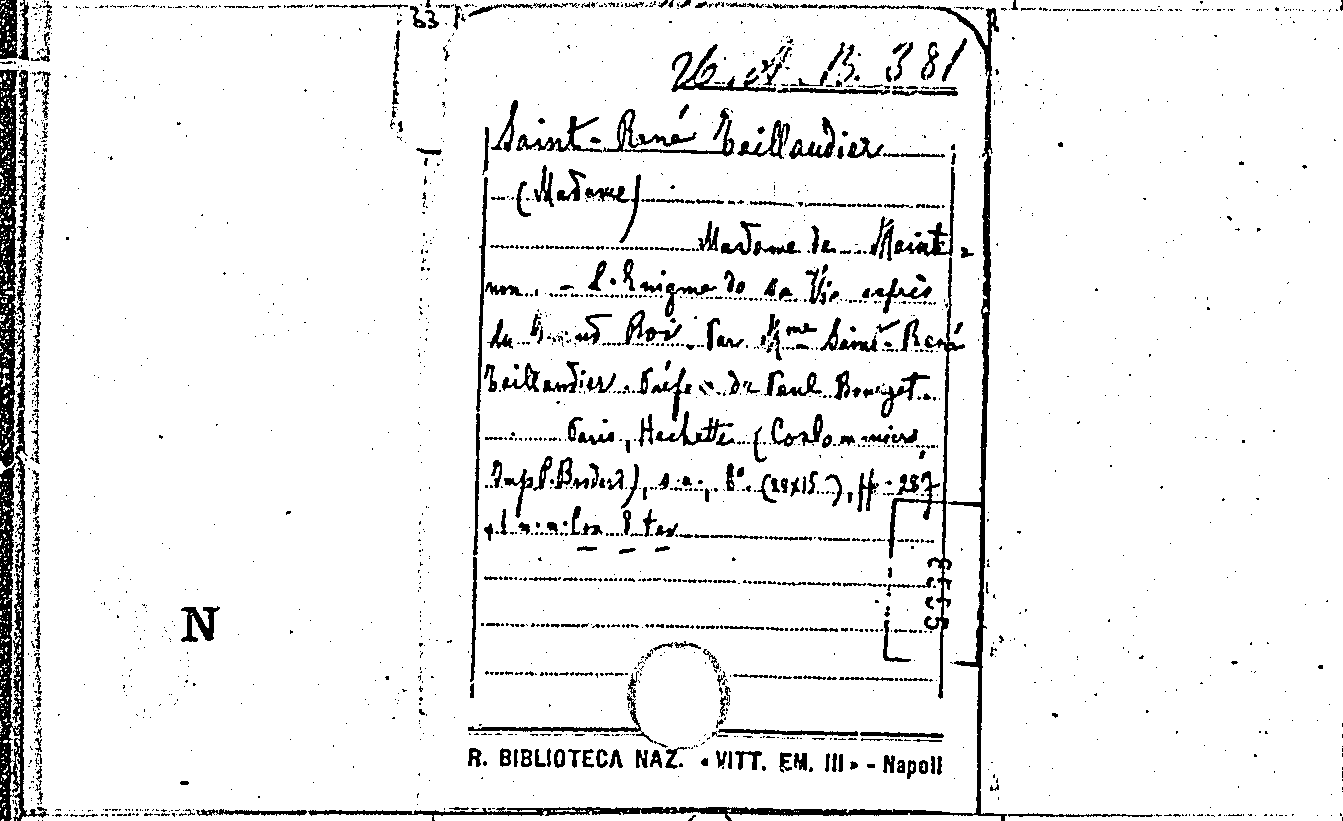 33
26. A. B. 381
Saint-René Taillandier
(Madame)
Madame de Maint=
non. - L'Enigme de sa Vie auprès
du Grand Roi. Par Mme Saint-René
Taillandier. Préface de Paul Bourget.
Paris, Hachette (Coulommiers,
Imp. P. Brodard), s. a., 8°. (22x15),
+ 1 n. n. Con
5553
N
R. BIBLIOTECA NAZ. «VITT. EM. III» - Napoli